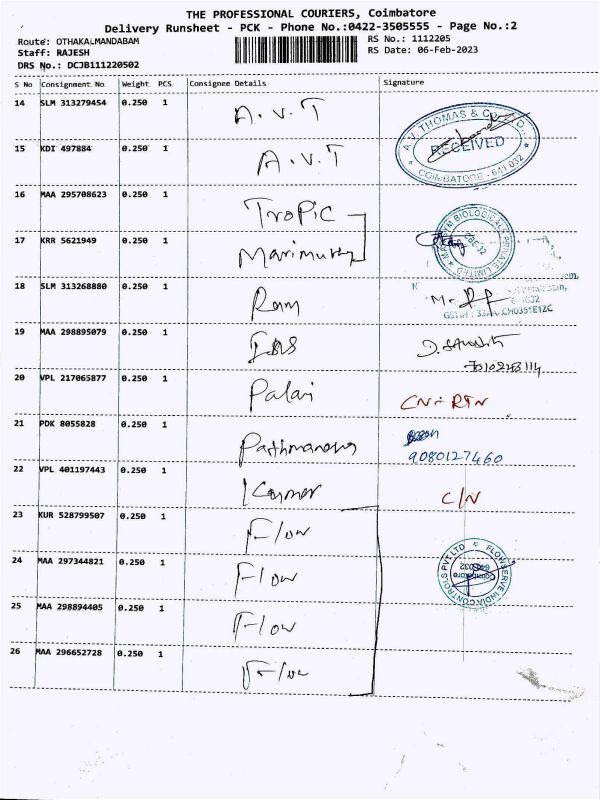 THE PROFESSIONAL COURIERS, Coimbatore
Delivery Runsheet - PCK - Phone No.:0422-3505555 - Page No.:2
Route: OTHAKALMANDABAM
Staff: RAJESH
DRS No.: DCJB111220502
RS No.: 1112205
RS Date: 06-Feb-2023
S No Consignment No. Weight PCS Consignee Details Signature
14 SLM 313279454 0.250 1 A.V.T
A.J. THOMAS & CO.
RECEIVED
COIMBATORE - 641 032
15 KDI 497884 0.250 1 A.V.T
16 MAA 295708623 0.250 1 Tropic
17 KRR 5621949 0.250 1 Marimuthu
BIOLOGICALS PRIVATE LIMITED
18 SLM 313268880 0.250 1 Ram
19 MAA 298895079 0.250 1
20 VPL 217065877 0.250 1 Palai CN-RTN
21 PDK 8055828 0.250 1
9080127460
22 VPL 401197443 0.250 1 C/N
23 KUR 528799507 0.250 1 Flow
24 MAA 297344821 0.250 1 Flow
FLOWSERVE INDIA CONTROLS PVT LTD
Coimbatore
25 MAA 298894405 0.250 1 Flow
26 MAA 296652728 0.250 1 Flow